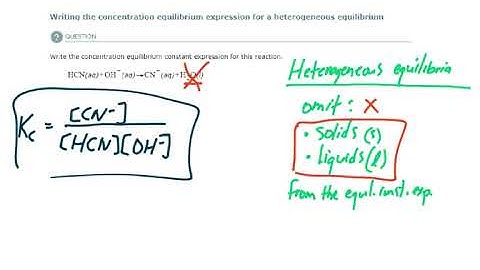 Writing the concentration equilibrium expression for a heterogeneous equilibrium
? QUESTION
Write the concentration equilibrium constant expression for this reaction.
HCN(aq)+OH⁻(aq)→CN⁻(aq)+H
Kc = [CN⁻] / [HCN][OH⁻]
Heterogeneous equilibria
omit: X
• solids (s)
• liquids (l)
from the equil. const. exp.